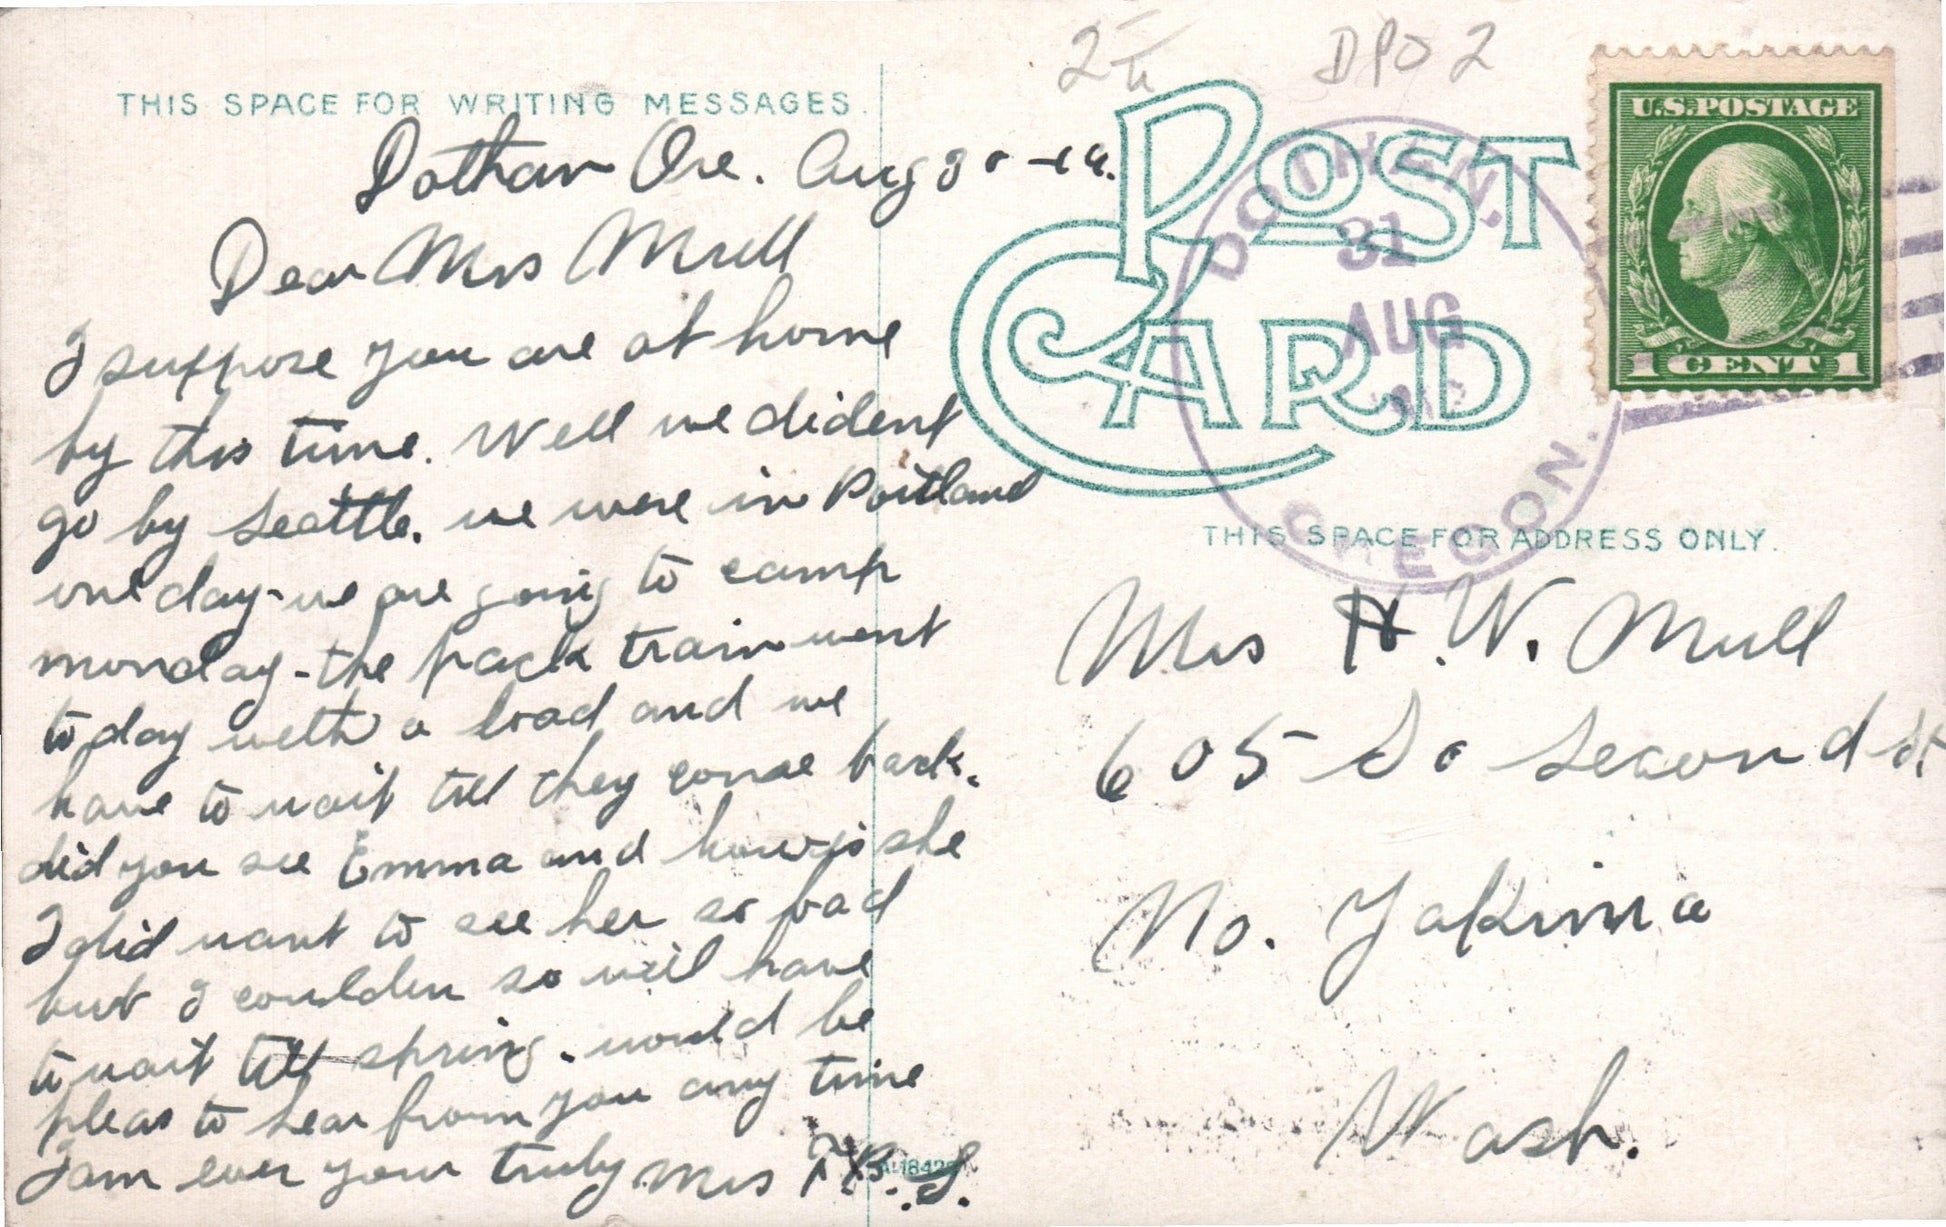 THIS SPACE FOR WRITING MESSAGES.
Dothan Ore. Aug 30 -19.
Dear Mrs Mull
I suppose you are at home
by this time. Well we dident
go by Seattle. we were in Portland
one day - we are going to camp
monday - the pack train went
to day with a load and we
have to wait till they come back.
did you see Emma and how is she
I did want to see her so bad
but I coulden so will have
to wait till spring. would be
pleas to hear from you any time
I am ever your truly Mrs F.B.S.
A-18420
DPO 2
POST CARD
DOTHAN.
31
AUG
OREGON.
U.S.POSTAGE
1 CENT 1
THIS SPACE FOR ADDRESS ONLY.
Mrs H.W. Mull
605 So Second St
No. Yakima
Wash.